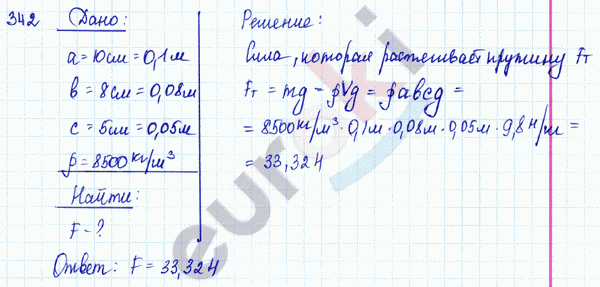 342 Дано:
a = 10см = 0,1м
в = 8см = 0,08м
с = 5см = 0,05м
ρ = 8500 кг/м³
Найти:
F - ?
Решение:
Сила, которая растягивает пружину Fт
Fт = mg - ρVg = ρавсg =
= 8500 кг/м³ · 0,1м · 0,08м · 0,05м · 9,8 н/м =
= 33,32Н
Ответ: F = 33,32Н
euroki